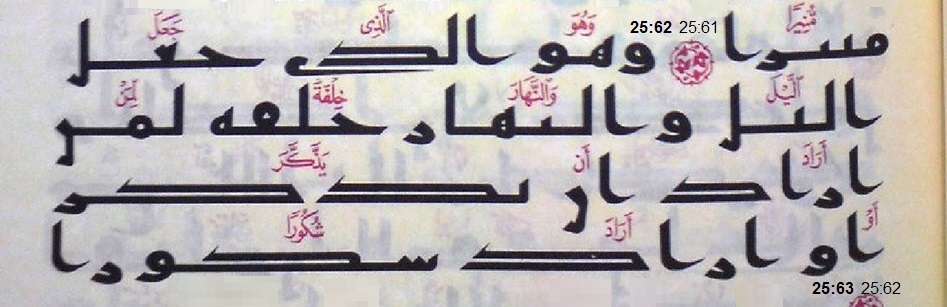 مُّنِيرًا 25:61 25:62 وَهُوَ ٱلَّذِى جَعَلَ
منيرا وهو الذى جعل
ٱلَّيْلَ وَٱلنَّهَارَ خِلْفَةً لِّمَنْ
اليل والنهار خلفه لمن
أَرَادَ أَن يَذَّكَّرَ
اراد ان يذكر
أَوْ أَرَادَ شُكُورًا
او اراد شكورا
25:62 25:63